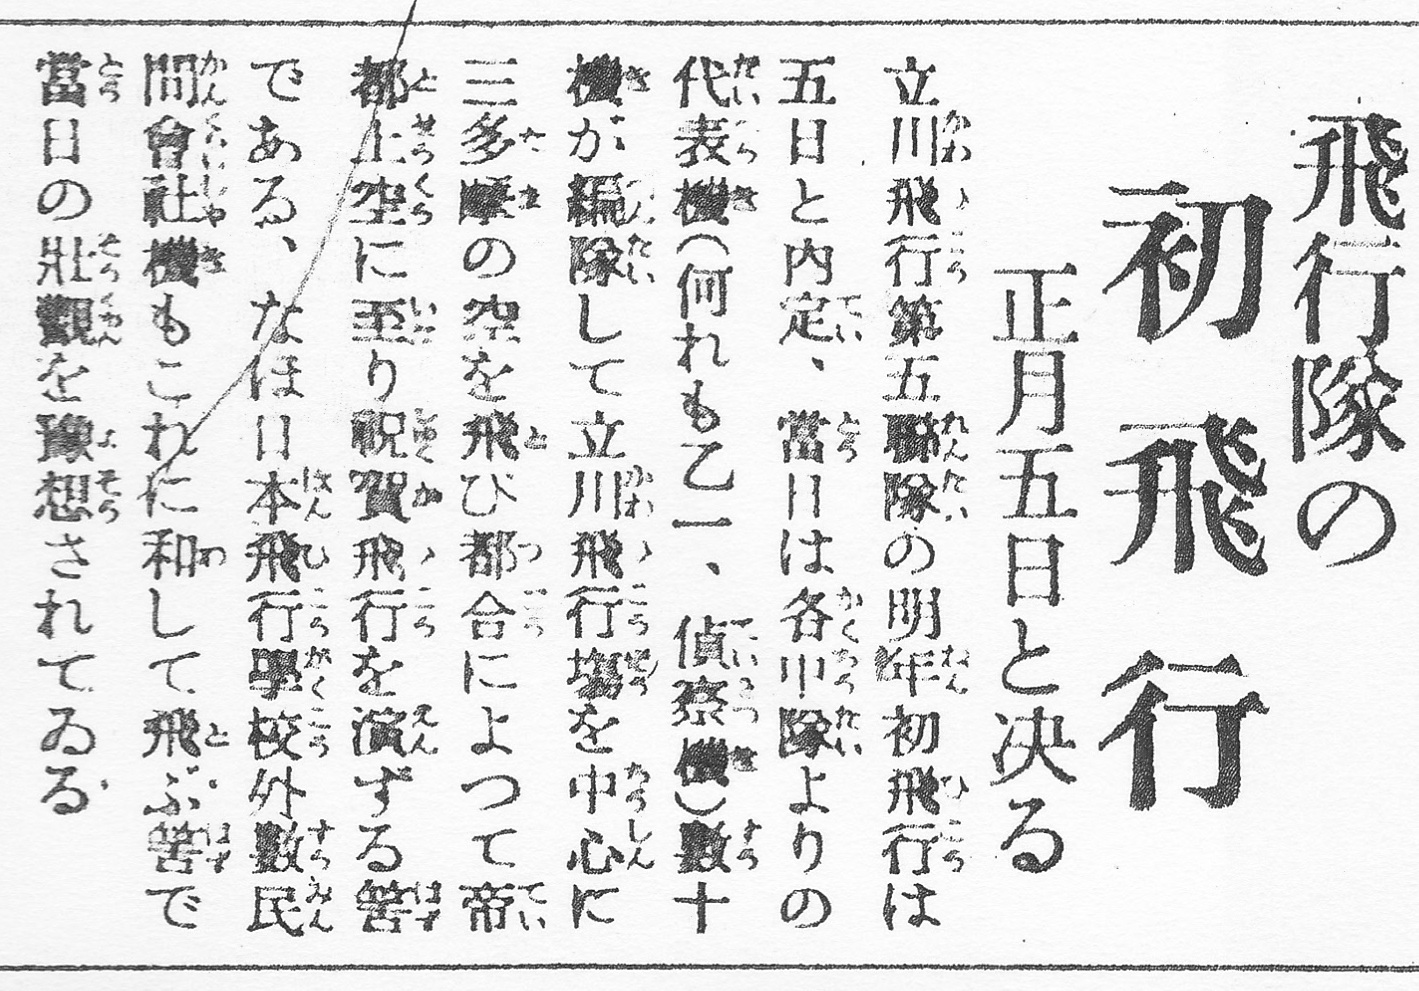 飛行隊の
初飛行
正月五日と决る
立川飛行第五聯隊の明年初飛行は
五日と内定、當日は各中隊よりの
代表機(何れも乙一、偵察機)數十
機が編隊して立川飛行塲を中心に
三多摩の空を飛び都合によつて帝
都上空に至り祝賀飛行を演ずる筈
である、なほ日本飛行學校外數民
間會社機もこれに和して飛ぶ筈で
當日の壯觀を豫想されてゐる